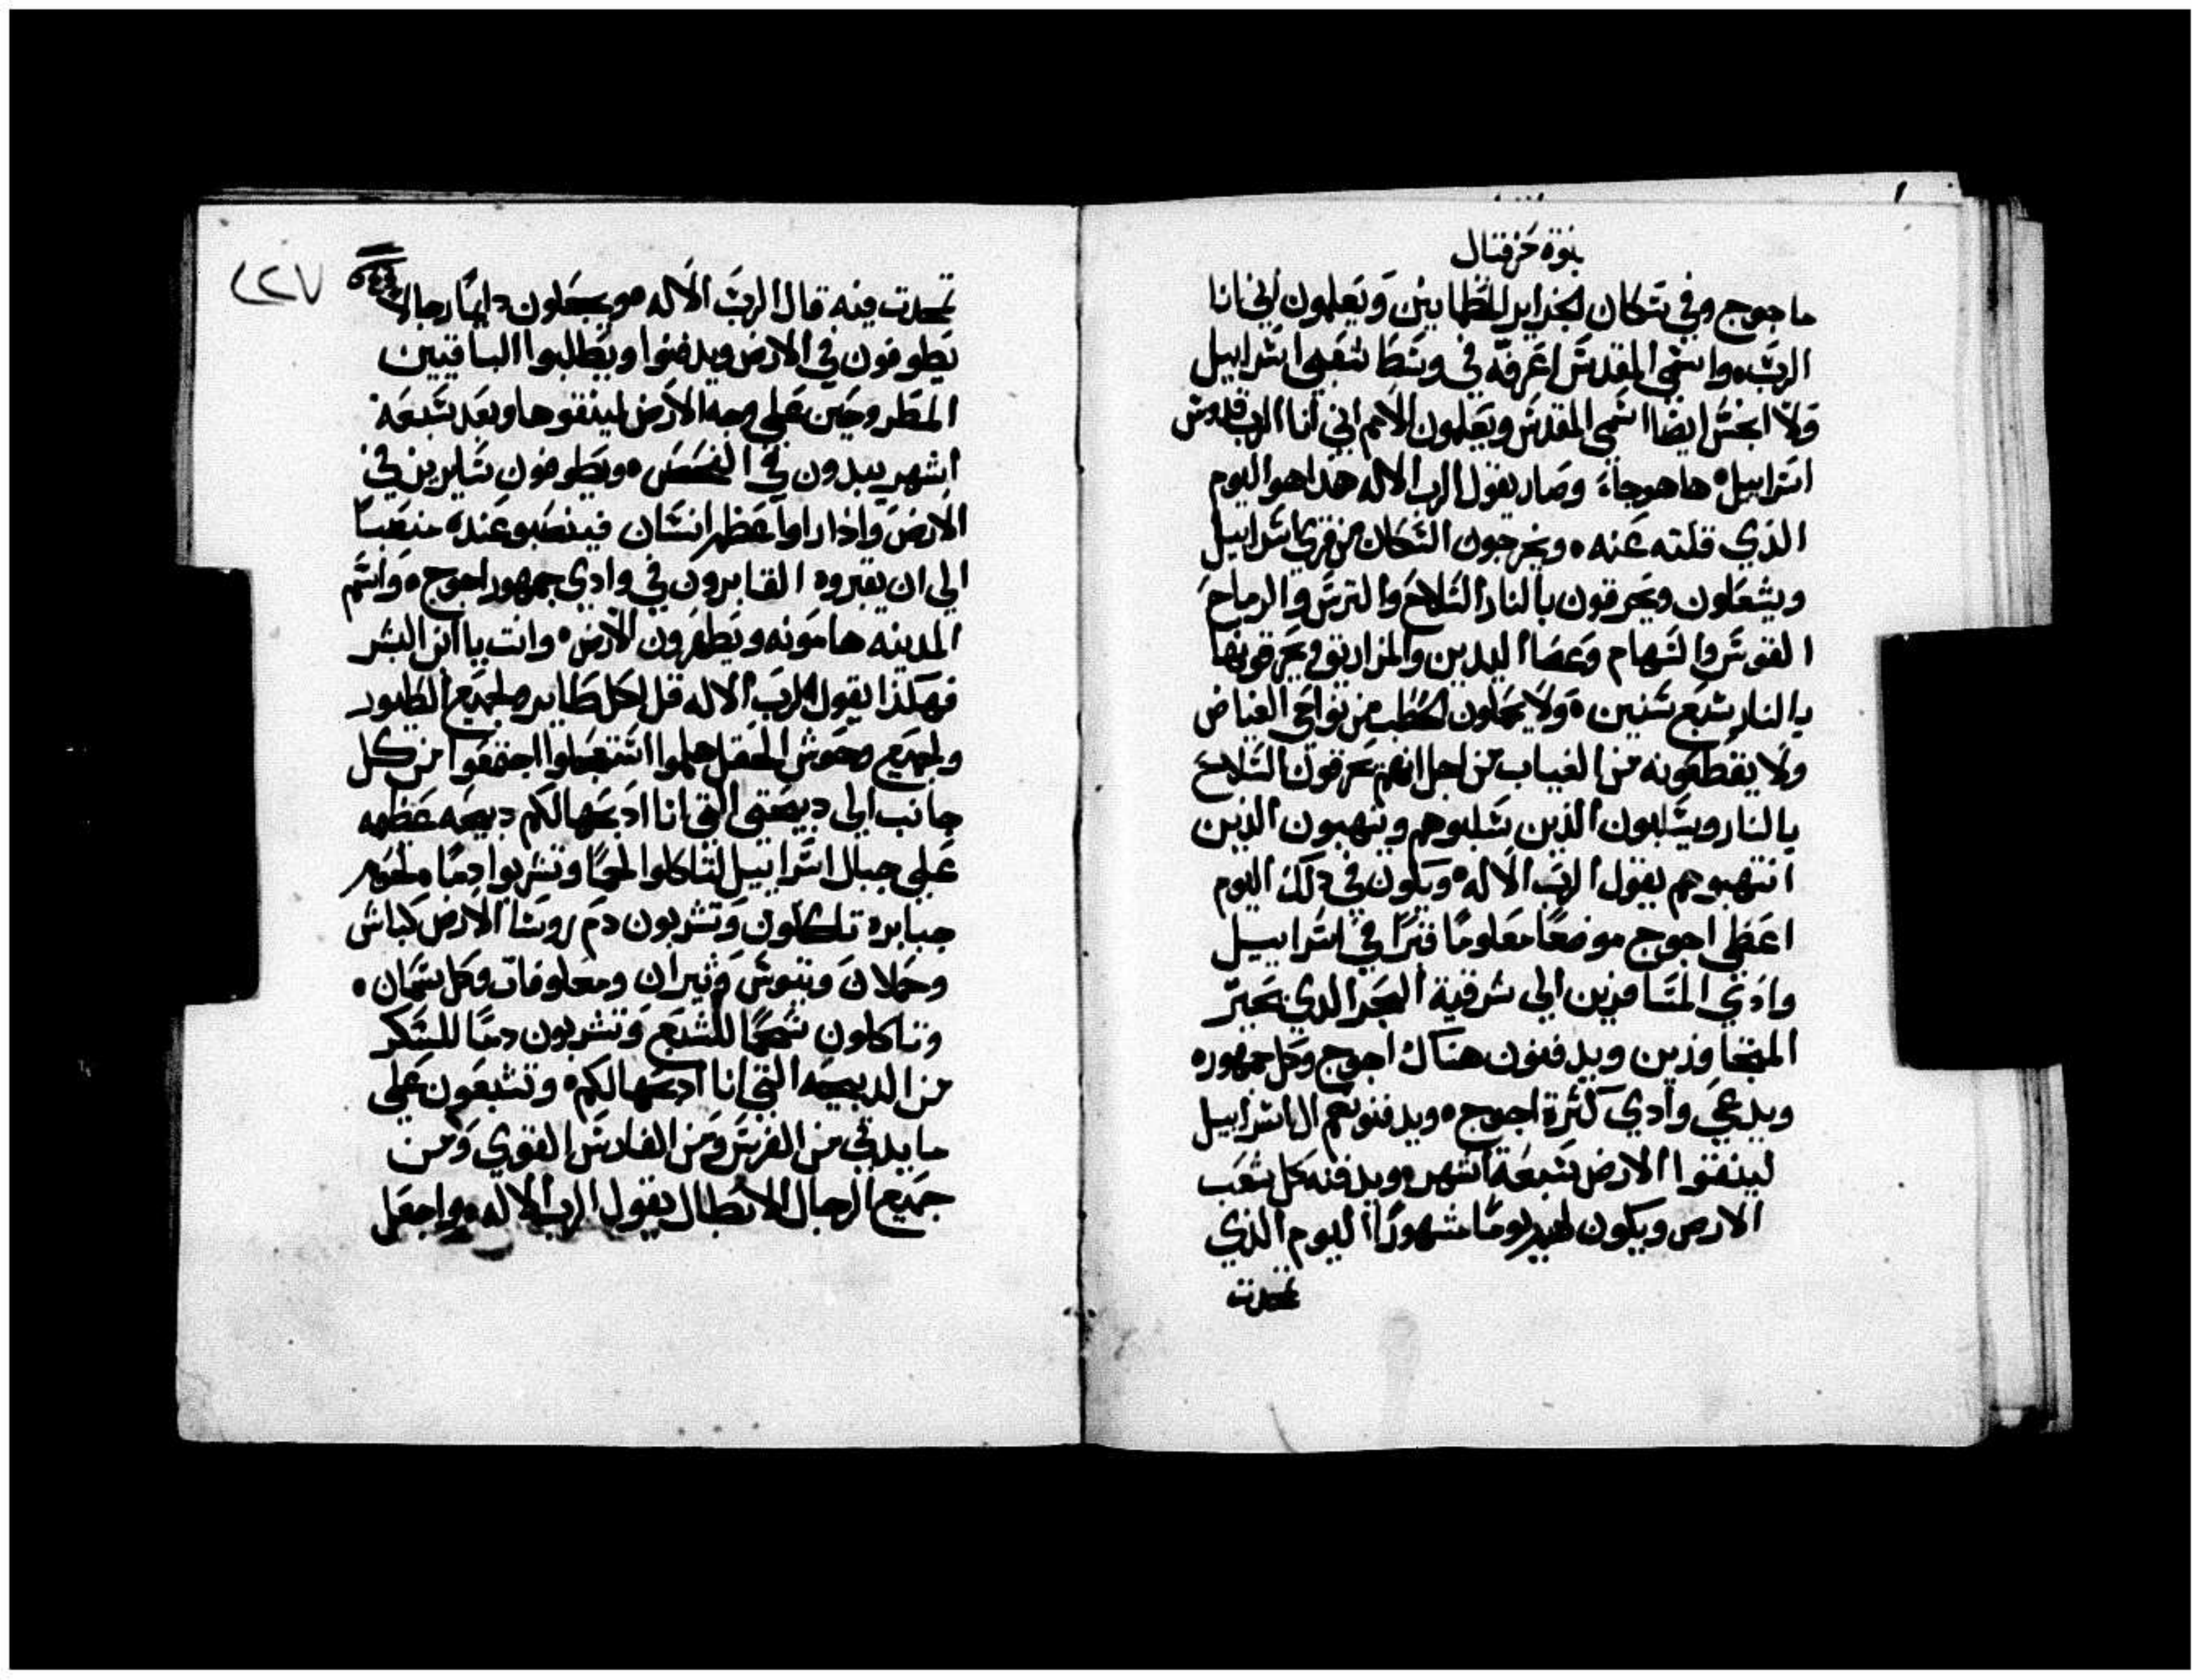 نبوة حزقيال
ماجوج وفي سكان الجزاير المطمانين ويعلمون اني انا
الرب واسمي المقدس اعرفه في وسط شعبي اسراييل
ولا انجس ايضا اسمي المقدس ويعلمون الامم اني انا الرب قدوس
اسراييل ها هو جاء وصار يقول الرب الاله هدا هو اليوم
الذي قلته عنه ويخرجون السكان من قري اسراييل
ويشعلون ويحرقون بالنار السلاح والترس والرماح
القوس والسهام وعصا اليدين والمزاريق ويحرقونها
بالنار سبع سنين ولا يحملون الحطب من نواحي الغياض
ولا يقطعونه من الغياب من اجل انهم يحرقون السلاح
بالنار ويسلبون الذين سلبوهم وينهبون الذين
انتهبوهم يقول الرب الاله ويكون في دلك اليوم
اعطي اجوج موضعا معلوما قبرا في اسراييل
وادي المسافرين الي شرقية البحر الدي يحير
المتجاوزين ويدفنون هناك اجوج وكل جمهوره
ويدعي وادي كثرة اجوج ويدفنونهم ال اسراييل
لينقوا الارض سبعة اشهر ويدفنه كل شعب
الارض ويكون لهم يوما مشهورا اليوم الذي
تمجدت
٢٢٧
تمجدت فيه قال الرب الاله ويجعلون دايما رجالا
يطوفون في الارض ويدفنوا ويطلبوا الباقيين
المطروحين علي وجه الارض لينقوها وبعد سبعة
اشهر يبدون في الفحص ويطوفون سايرين في
الارض وادا راوا عظم انسان فينصبو عنده منصبا
الي ان يقبروه القابرون في وادي جمهور اجوج واسم
المدينه هامونه ويطهرون الارض وانت يا ابن البشر
فهكذا يقول الرب الاله قل لكل طاير ولجميع الطيور
ولجميع وحوش الحقل هلموا استعجلوا اجتمعوا من كل
جانب الي دبيحتي التي انا ادبحها لكم دبيحه عظيمه
علي جبال اسراييل لتاكلوا لحما وتشربوا دما ولحوم
جبابره تاكلون وتشربون دم روسا الارض كباش
وحملان وتيوس وثيران ومعلوفات وكل سمان
وتاكلون شحما للشبع وتشربون دما للسكر
من الدبيحه التي انا ادبحها لكم وتشبعون علي
مايدتي من الفرس ومن الفارس القوي ومن
جميع الرجال الابطال يقول الرب الاله واجعل